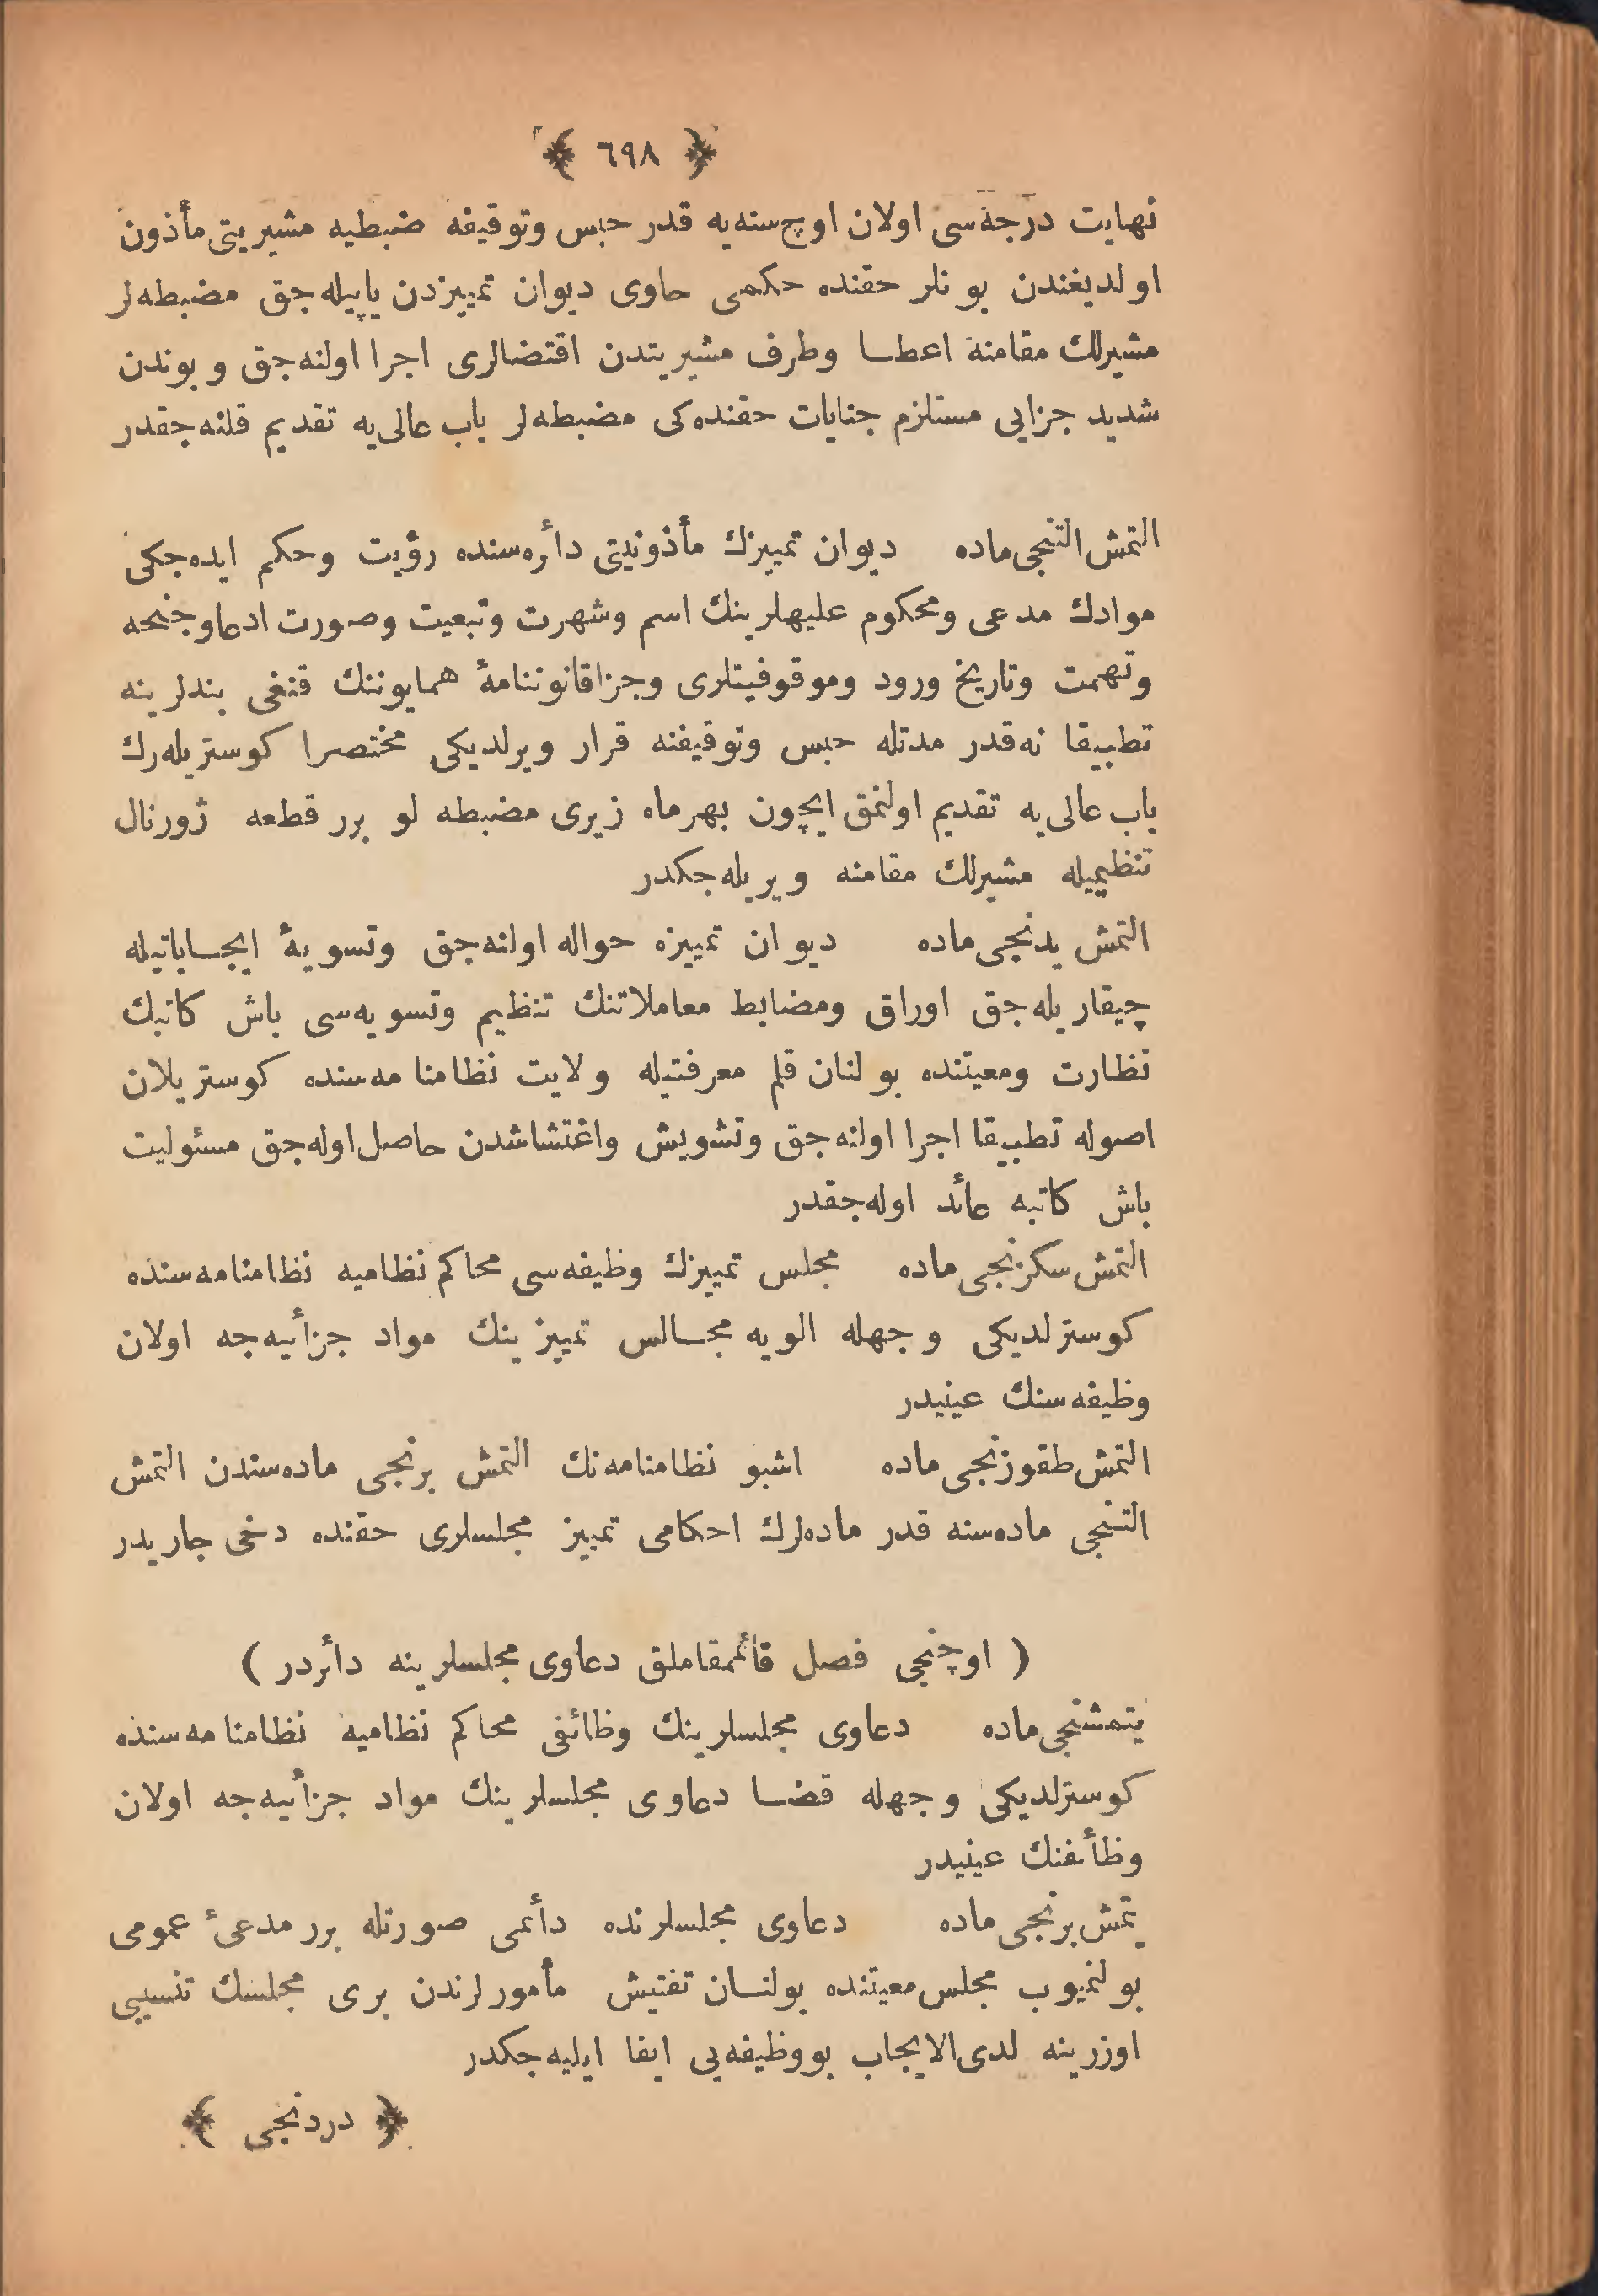 ﴿ ٦٩٨ ﴾
نهایت درجه‌سی اولان اوچ سنه‌یه قدر حبس وتوقیفه ضبطیه مشیریتی مأذون
اولدیغندن بونلر حقنده حکمی حاوی دیوان تمییزدن یاپیله‌جق مضبطه‌لر
مشیرلك مقامنه اعطا وطرف مشیریتدن اقتضالری اجرا اولنه‌جق وبوندن
شدید جزایی مستلزم جنایات حقنده‌کی مضبطه‌لر باب عالی‌یه تقدیم قلنه‌جقدر
التمش التنجی ماده دیوان تمییزك مأذونیتی دأره‌سنده رؤیت وحکم ایده‌جکی
موادك مدعی ومحکوم علیهلرینك اسم وشهرت وتبعیت وصورت ادعا وجنحه
وتهمت وتاریخ ورود وموقوفیتلری وجزا قانوننامهٔ همایوننك قنغی بندلرینه
تطبیقا نه‌قدر مدتله حبس وتوقیفنه قرار ویرلدیکی مختصرا کوستریله‌رك
باب عالی‌یه تقدیم اولنمق ایچون بهرماه زیری مضبطه لو برر قطعه ژورنال
تنظیمیله مشیرلك مقامنه ویریله‌جکدر
التمش یدنجی ماده دیوان تمییزه حواله اولنه‌جق وتسویهٔ ایجاباتیله
چیقاریله‌جق اوراق ومضابط معاملاتنك تنظیم وتسویه‌سی باش کاتبك
نظارت ومعیتنده بولنان قلم معرفتیله ولایت نظامنامه‌سنده کوستریلان
اصوله تطبیقا اجرا اولنه‌جق وتشویش واغتشاشدن حاصل اوله‌جق مسئولیت
باش کاتبه عأد اوله‌جقدر
التمش سکزنجی ماده مجلس تمییزك وظیفه‌سی محاکم نظامیه نظامنامه‌سنده
کوسترلدیکی وجهله الویه مجالس تمییزینك مواد جزأیه‌جه اولان
وظیفه‌سنك عینیدر
التمش طقوزنجی ماده اشبو نظامنامه‌نك التمش برنجی ماده‌سندن التمش
التنجی ماده‌سنه قدر ماده‌لرك احکامی تمییز مجلسلری حقنده دخی جاریدر
( اوچنجی فصل قأممقاملق دعاوی مجلسلرینه دأردر )
یتمشنجی ماده دعاوی مجلسلرینك وظائفی محاکم نظامیه نظامنامه‌سنده
کوسترلدیکی وجهله قضا دعاوی مجلسلرینك مواد جزأیه‌جه اولان
وظأفنك عینیدر
یتمش برنجی ماده دعاوی مجلسلرنده دأمی صورتله برر مدعیٔ عمومی
بولنمیوب مجلس معیتنده بولنان تفتیش مأمورلرندن بری مجلسك تنسیبی
اوزرینه لدی الایجاب بو وظیفه‌یی ایفا ایلیه‌جکدر
﴿ دردنجی ﴾